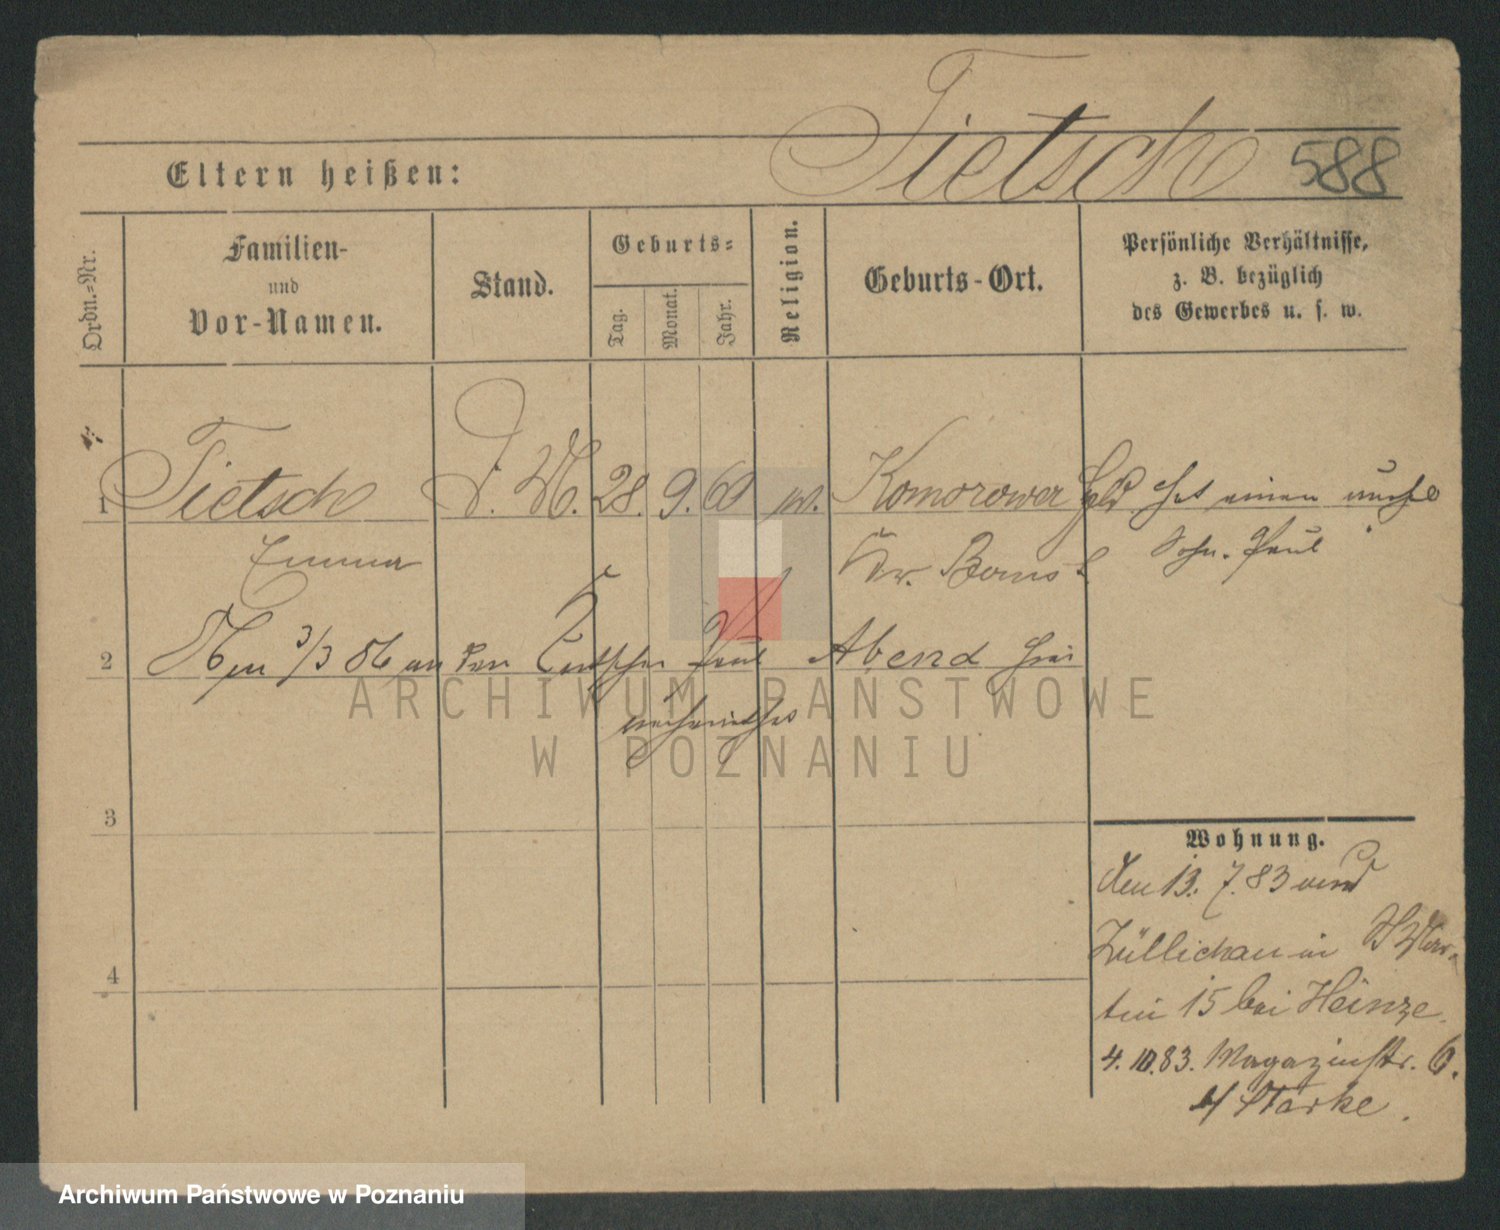 Tietsch 588
Eltern heißen:
Ordn.-Nr.
Familien-
und
Vor-Namen.
Stand.
Geburts-
Tag.
Monat.
Jahr.
Religion.
Geburts-Ort.
Persönliche Verhältnisse,
z. B. bezüglich
des Gewerbes u. s. w.
1 Tietsch D. M. 28. 9. 60 w. Komorower hat einen unehl
Emma Kr. Bomst Sohn. Paul
2 3/3 86 an den Paul Abend hier
3
Wohnung.
den 13. 7. 83 von
Züllichau in St Mar-
4
tin 15 bei Heinze.
4. 10. 83. Magazinstr. 6.
b/ Starke.
ARCHIWUM PAŃSTWOWE
W POZNANIU
Archiwum Państwowe w Poznaniu